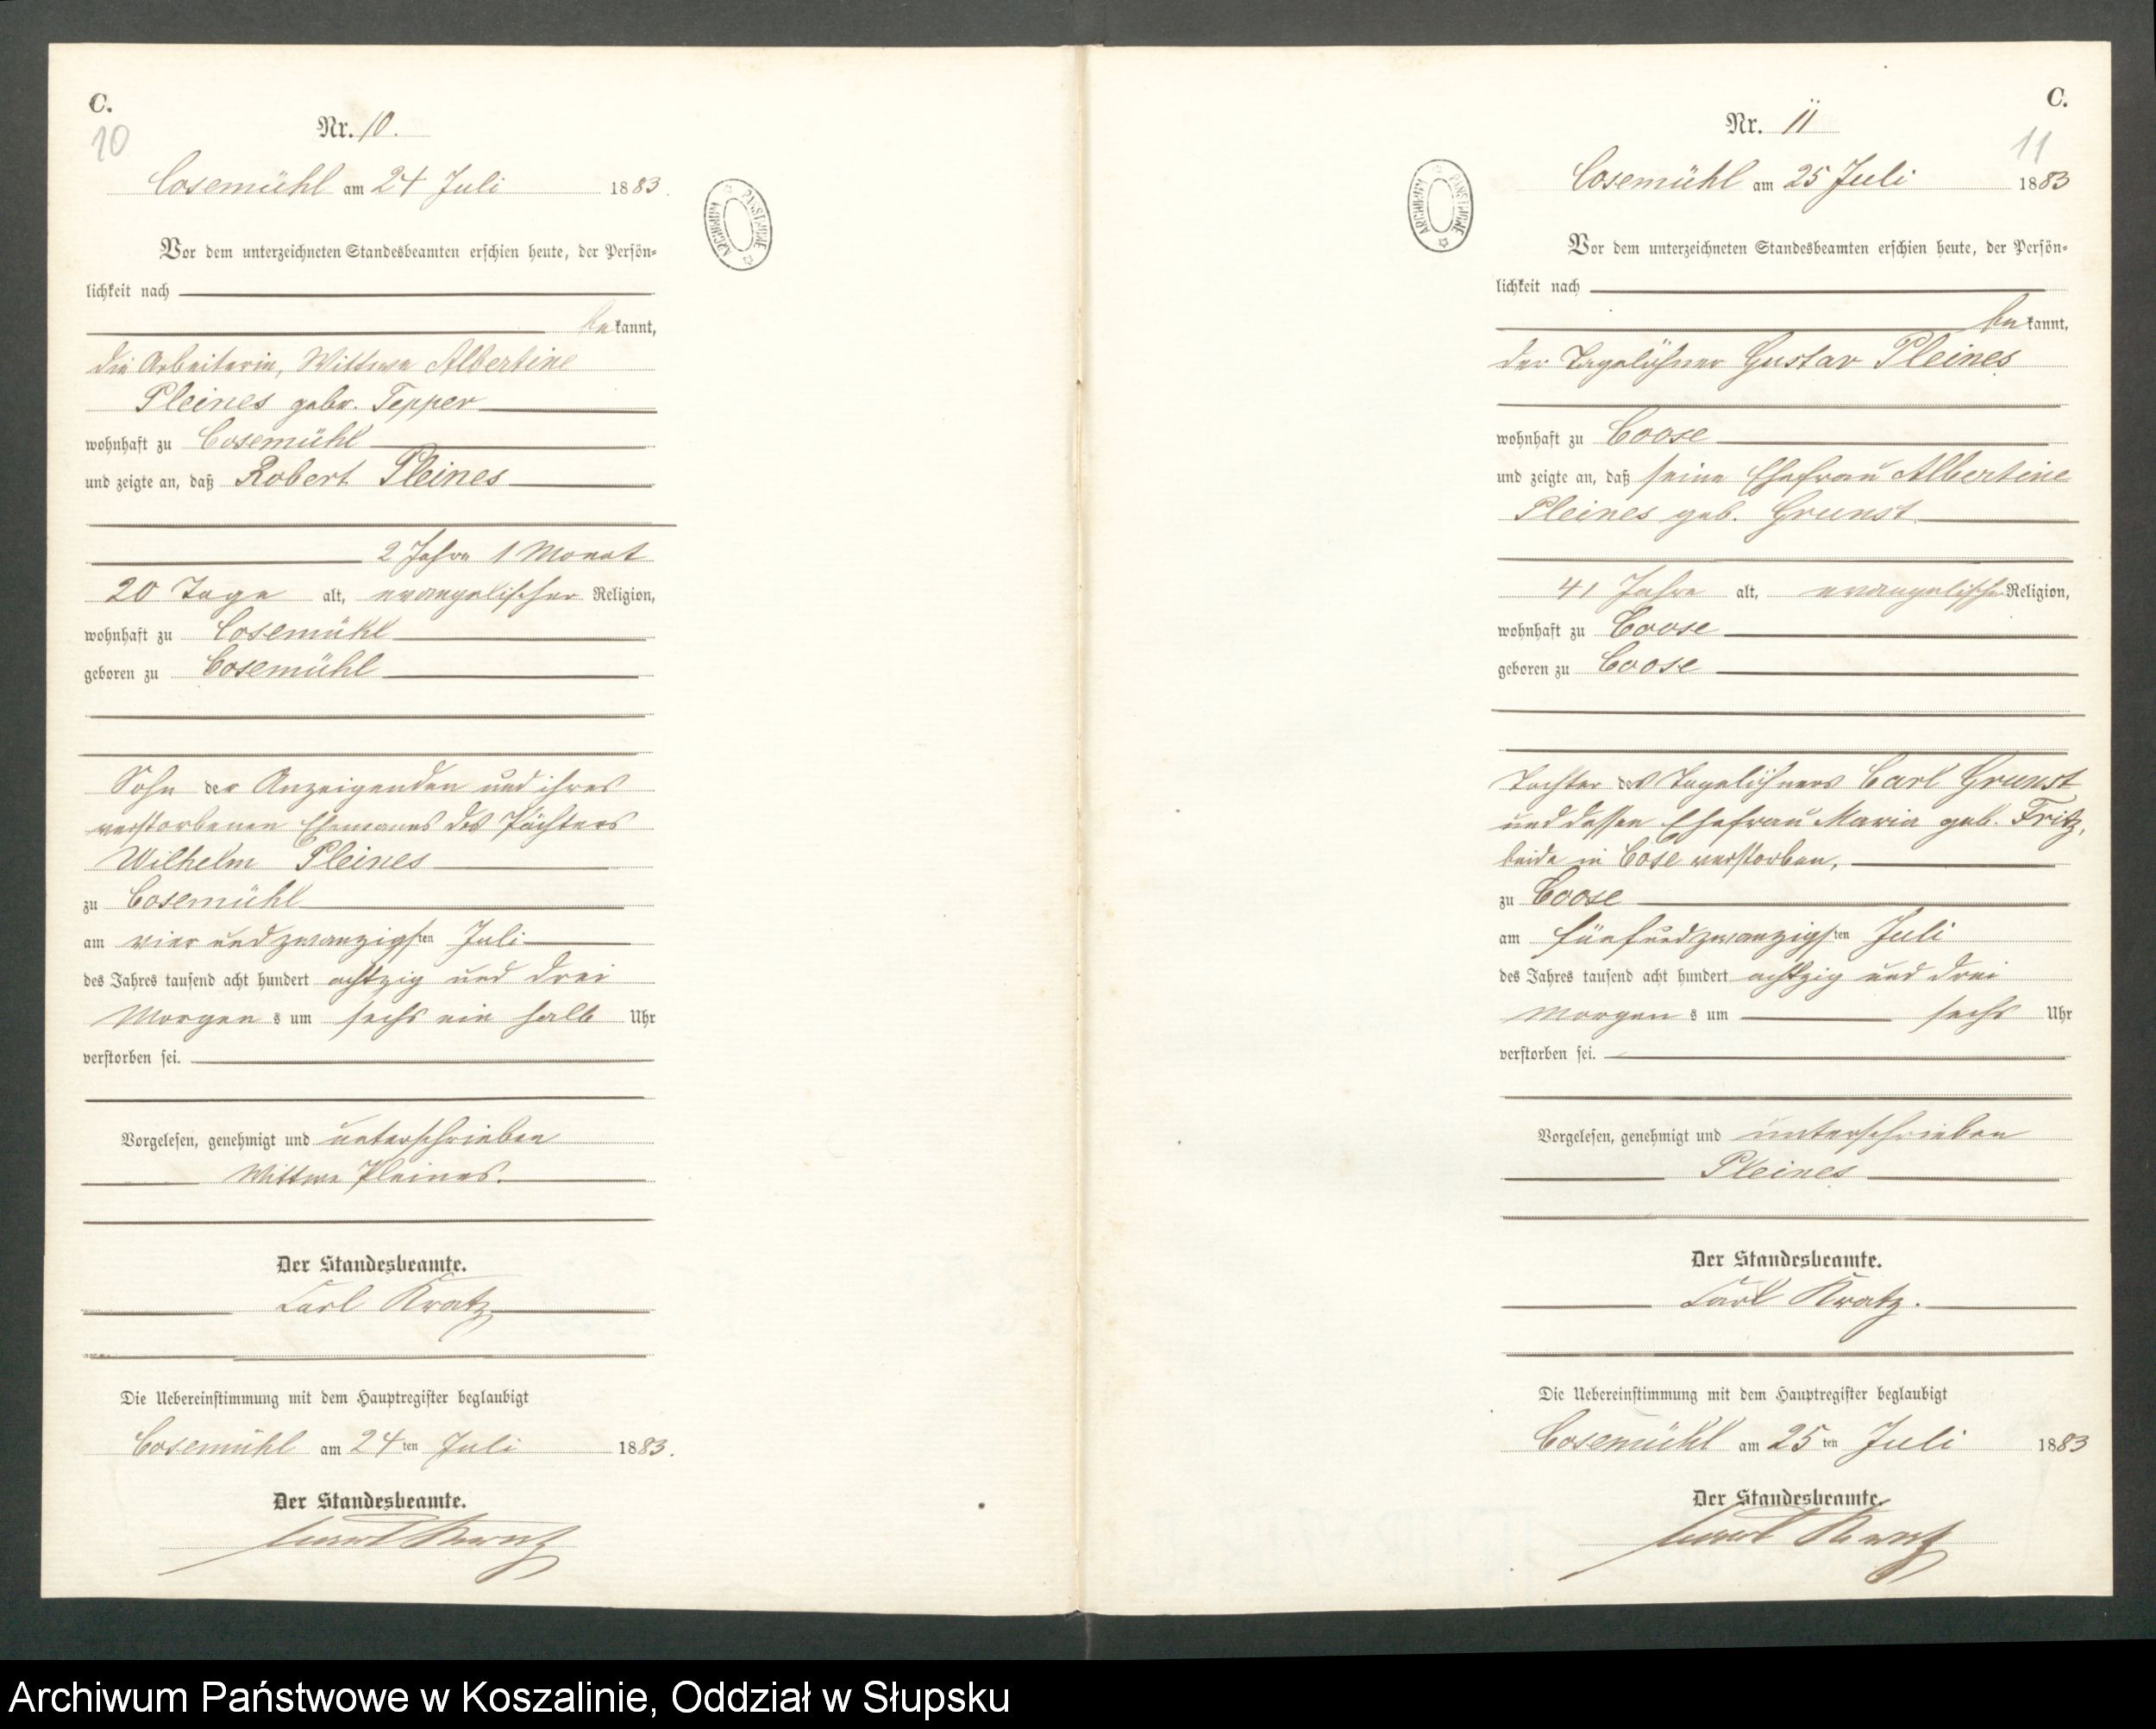 C.
10
Nr. 10.
Cosemühl am 24 Juli 1883.
ARCHIWUM PAŃSTWOWE
Vor dem unterzeichneten Standesbeamten erschien heute, der Persön-
lichkeit nach
bekannt,
die Arbeiterin, Wittwe Albertine
Pleines gebr. Tepper
wohnhaft zu Cosemühl
und zeigte an, daß Robert Pleines
2 Jahre 1 Monat
20 Tage alt, evangelischer Religion,
wohnhaft zu Cosemühl
geboren zu Cosemühl
Sohn der Anzeigenden und ihres
verstorbenen Ehemanns des Pächters
Wilhelm Pleines
zu Cosemühl
am vier und zwanzigsten Juli
des Jahres tausend acht hundert achtzig und drei
Morgens um sechs ein halb Uhr
verstorben sei.
Vorgelesen, genehmigt und unterschrieben
Wittwe Pleines.
Der Standesbeamte.
Carl Kratz
Die Uebereinstimmung mit dem Hauptregister beglaubigt
Cosemühl am 24ten Juli 1883.
Der Standesbeamte.
Carl Kratz
C.
11
Nr. 11
Cosemühl am 25 Juli 1883
ARCHIWUM PAŃSTWOWE
Vor dem unterzeichneten Standesbeamten erschien heute, der Persön-
lichkeit nach
bekannt,
der Tagelöhner Gustav Pleines
wohnhaft zu Coose
und zeigte an, daß seine Ehefrau Albertine
Pleines geb. Grunst
41 Jahre alt, evangelischer Religion,
wohnhaft zu Coose
geboren zu Coose
Tochter des Tagelöhners Carl Grunst
und dessen Ehefrau Maria geb. Fritz,
beide in Cose verstorben,
zu Coose
am fünfundzwanzigsten Juli
des Jahres tausend acht hundert achtzig und drei
Morgens um sechs Uhr
verstorben sei.
Vorgelesen, genehmigt und unterschrieben
Pleines
Der Standesbeamte.
Carl Kratz.
Die Uebereinstimmung mit dem Hauptregister beglaubigt
Cosemühl am 25ten Juli 1883
Der Standesbeamte.
Carl Kratz
Archiwum Państwowe w Koszalinie, Oddział w Słupsku